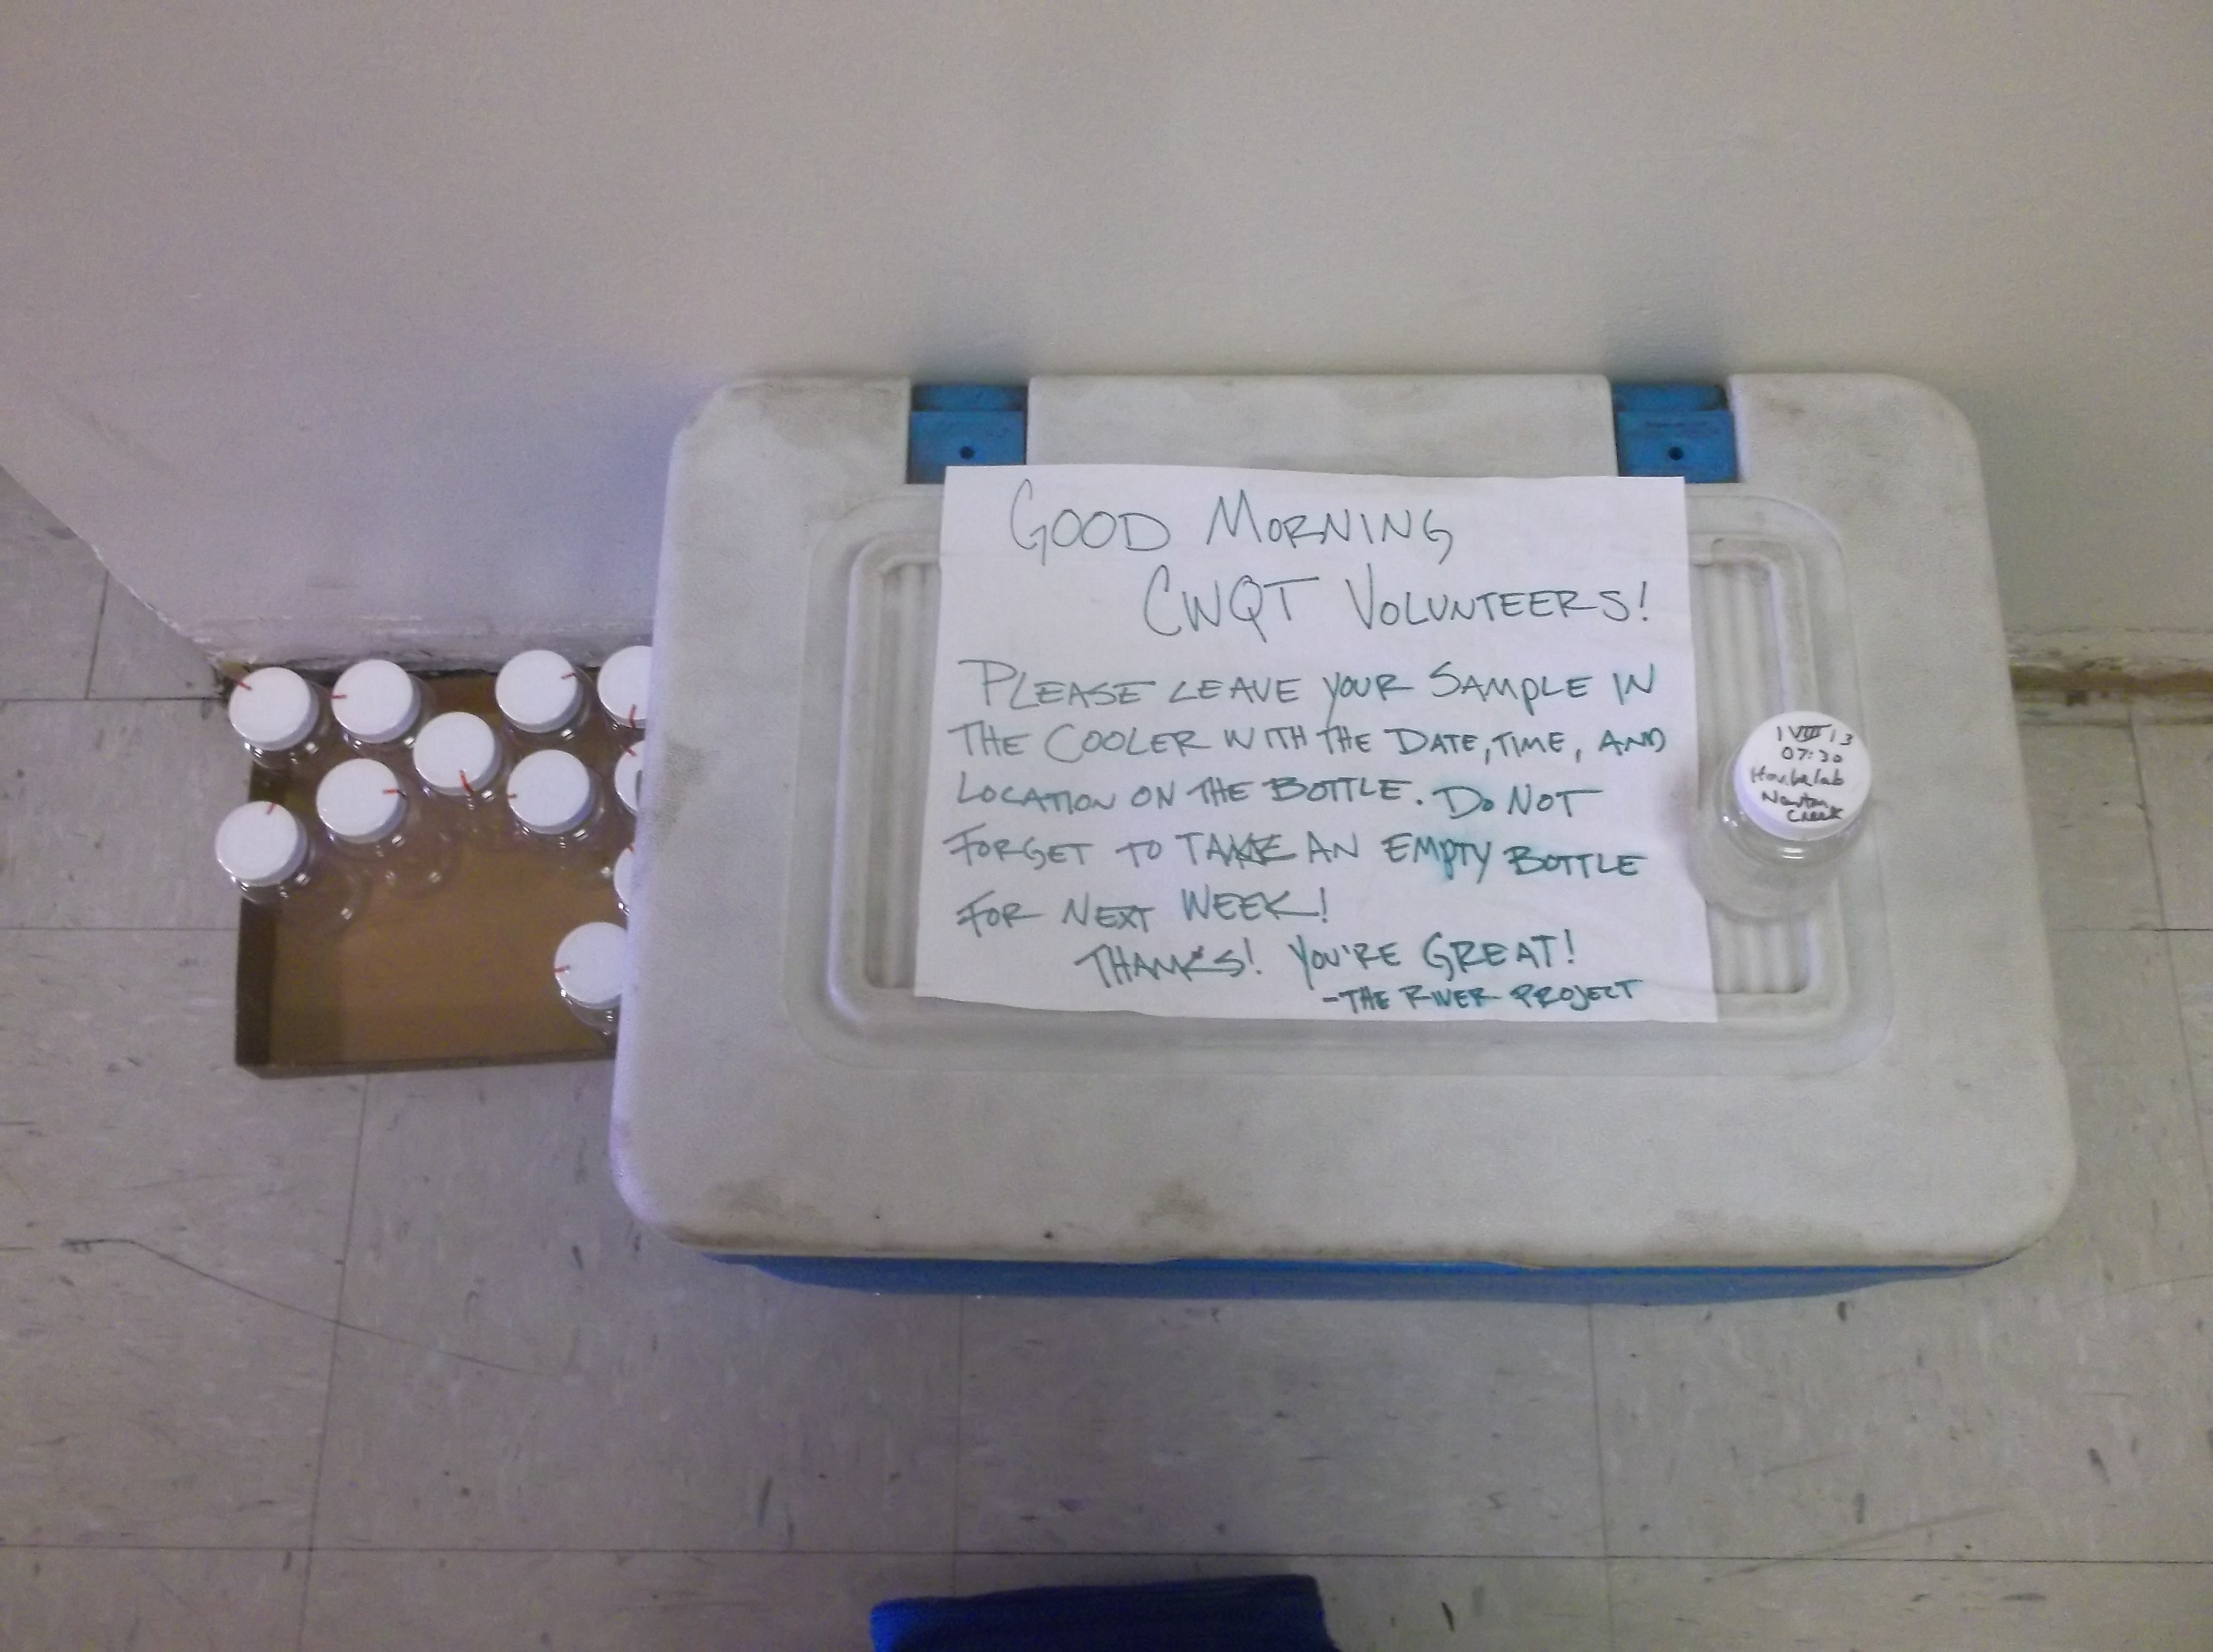 GOOD MORNING
CWQT VOLUNTEERS!
PLEASE LEAVE YOUR SAMPLE IN
THE COOLER WITH THE DATE, TIME, AND
LOCATION ON THE BOTTLE. DO NOT
FORGET TO TAKE AN EMPTY BOTTLE
FOR NEXT WEEK!
THANKS! YOU'RE GREAT!
-THE RIVER PROJECT
1 VIII 13
07:30
Newton
Creek